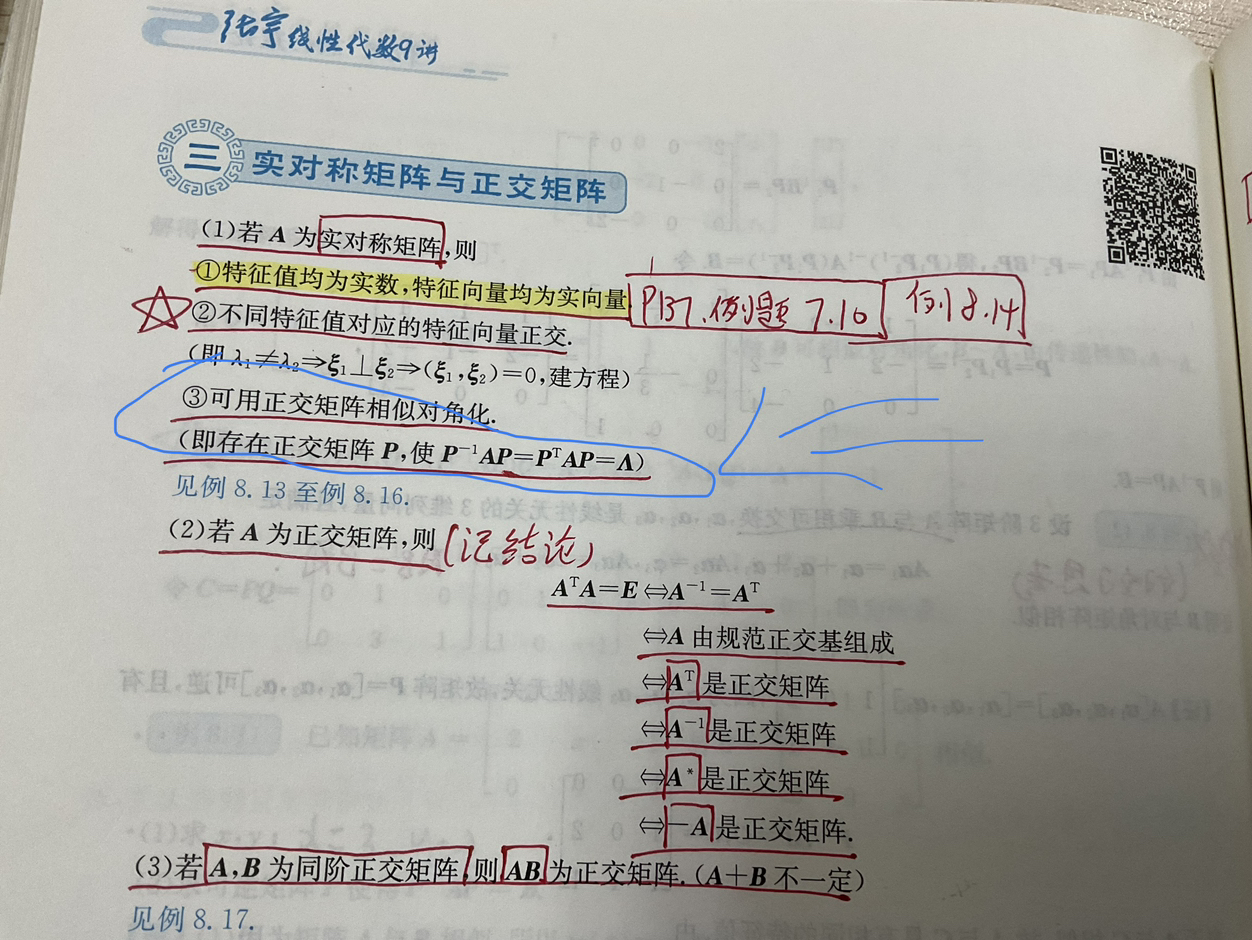 张宇线性代数9讲
三 实对称矩阵与正交矩阵
(1)若 A 为实对称矩阵,则
①特征值均为实数,特征向量均为实向量 P137.例题 7.10 例 8.14
②不同特征值对应的特征向量正交.
(即 λ₁≠λ₂⇒ξ₁⊥ξ₂⇒(ξ₁,ξ₂)=0,建方程)
③可用正交矩阵相似对角化.
(即存在正交矩阵 P,使 P⁻¹AP=PᵀAP=Λ)
见例 8.13 至例 8.16.
(2)若 A 为正交矩阵,则 (记结论)
AᵀA=E⇔A⁻¹=Aᵀ
⇔A 由规范正交基组成
⇔Aᵀ 是正交矩阵
⇔A⁻¹是正交矩阵
⇔A* 是正交矩阵
⇔-A 是正交矩阵.
(3)若 A,B 为同阶正交矩阵,则 AB 为正交矩阵.(A+B 不一定)
见例 8.17.